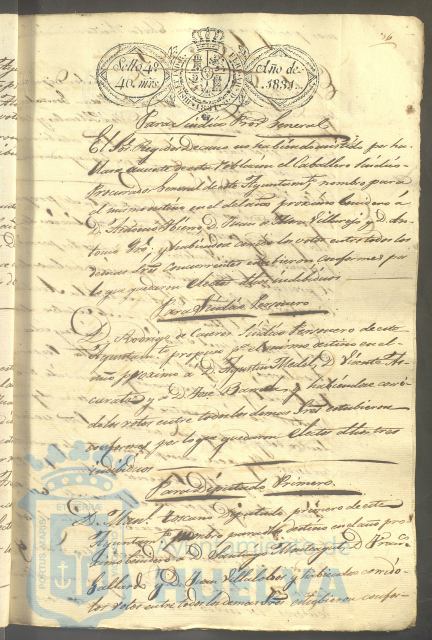 Sello 4º
40. mrs
Año de
1831.
Para Sindico Pror General
El Sor Regidor Decano no habiendo asistido por ha
llarse ausente de esta Poblacion el Caballero Sindico
Procurador General de este Ayuntamto, nombro para
el mismo destino en el del año proximo venidero a
D. Antonio D. Juan de Villarejo y D. An
tonio y habiendo corrido los votos entre todos los
demas Sres Concurrentes estubieron conformes por
lo que quedaron electos dhos individuos
Para Sindico Personero
D. Rodrigo de Caceres Sindico Personero de este
Ayuntamto propuso pa el mismo destino en el
año proximo a D. Agustin Medel, D. Vicente
y a D. José y habiendose corri
do los votos entre todos los demas Sres estubieron
conformes por lo que quedaron electos dhos tres
individuos
Para Diputado Primero.
D. Diputado primero de este
Ayuntamto nombro para dho destino en el año pro
ximo venidero a D. D. Franco
D. Juan Villalobos y habiendo corrido
los votos entre todos los demas Sres estubieron confor-
PORTUS MARIS
ET TERRAE
Ayuntamiento de
HUELVA